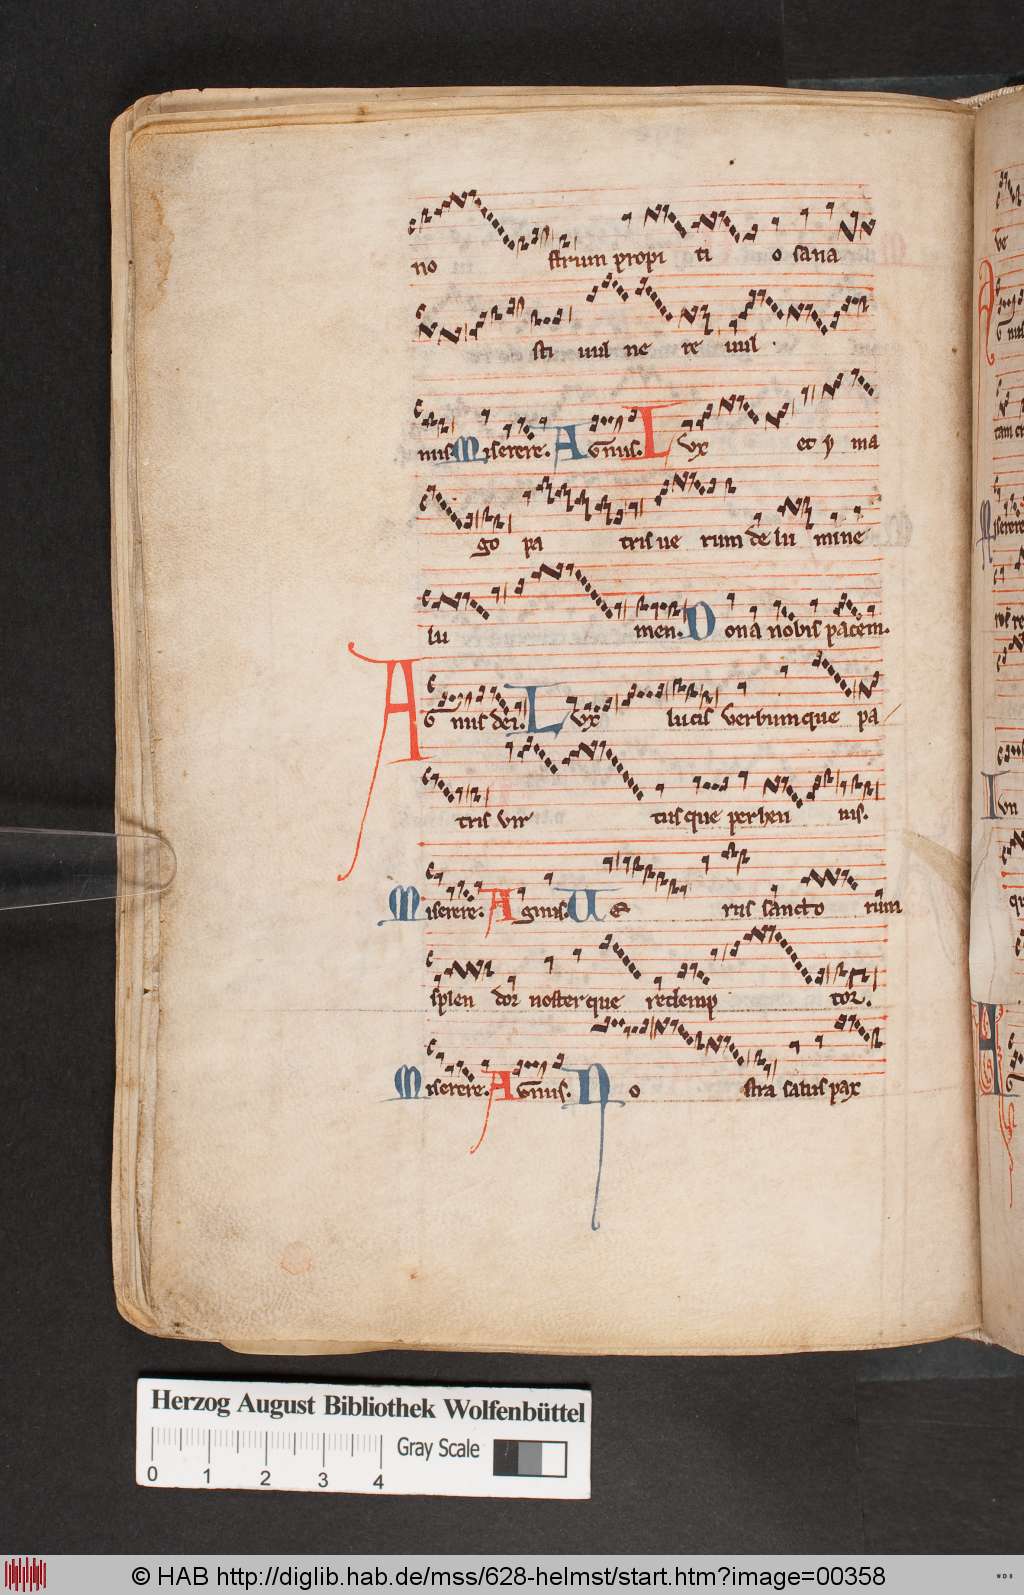 no strum propi ti o sana
sti uul ne re uul .
nus Miserere. Agnus. Lux et y ma
go pa tris ue rum de lu mine
lu men. Dona nobis pacem.
Agnus dei. Lux lucis verbumque pa
tris vir tusque perhen nis.
Miserere. Agnus. Ue rus sancto rum
splen dor nosterque redemp tor.
Miserere. Agnus. No stra salus pax
ve
G nus
Miserere
Herzog August Bibliothek Wolfenbüttel
Gray Scale
0 1 2 3 4
© HAB http://diglib.hab.de/mss/628-helmst/start.htm?image=00358